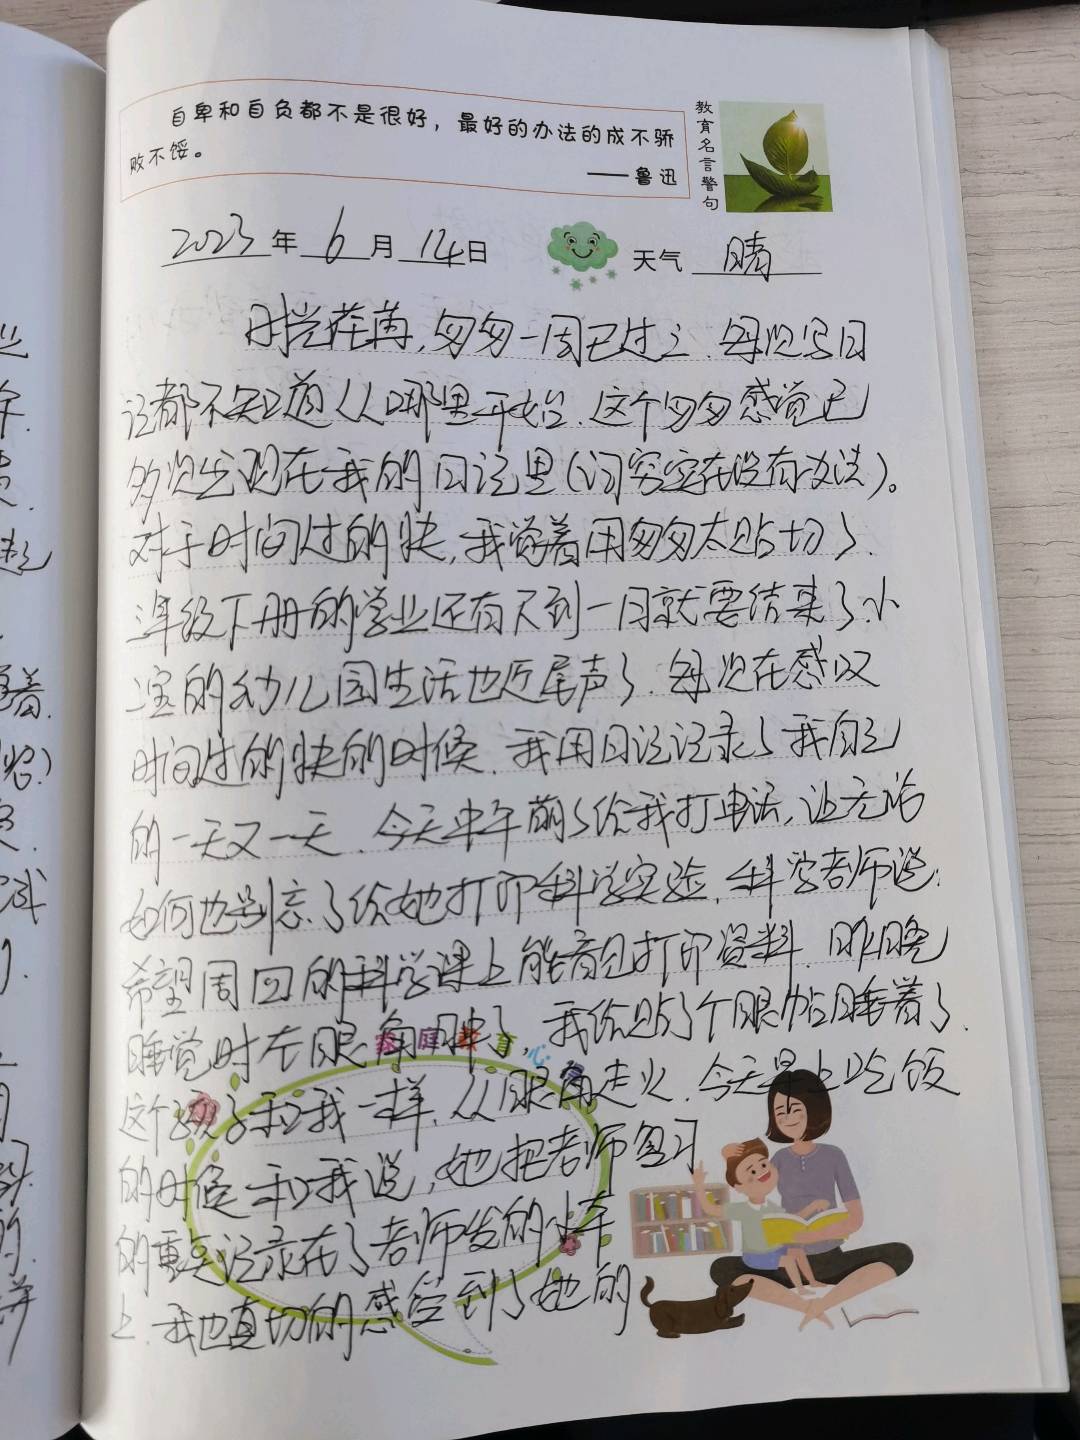 自卑和自负都不是很好，最好的办法的成不骄
败不馁。
——鲁迅
教育名言警句
2023年6月14日 天气 晴
时光荏苒，匆匆一周已过去.每次写日
记都不知道从哪里开始.这个匆匆感觉已
多次出现在我的日记里(词穷实在没有办法)。
对于时间过的快,我觉着用匆匆太贴切了.
三年级下册的学业还有不到一月就要结束了.小
宝的幼儿园生活也近尾声了.每次在感叹
时间过的快的时候.我用日记记录了我自己
的一天又一天.今天中午萌了给我打电话,让无论
如何也别忘了给她打印科学实验.科学老师说:
希望周四的科学课上能看见打印资料.昨晚
睡觉时左眼角肿了,我给贴了个眼帖睡着了.
家庭教育心
这个孩子和我一样.从眼角走火.今天早上吃饭
的时候和我说,她把老师复习
的重点记录在了老师发的小本
上.我也真切的感受到了她的